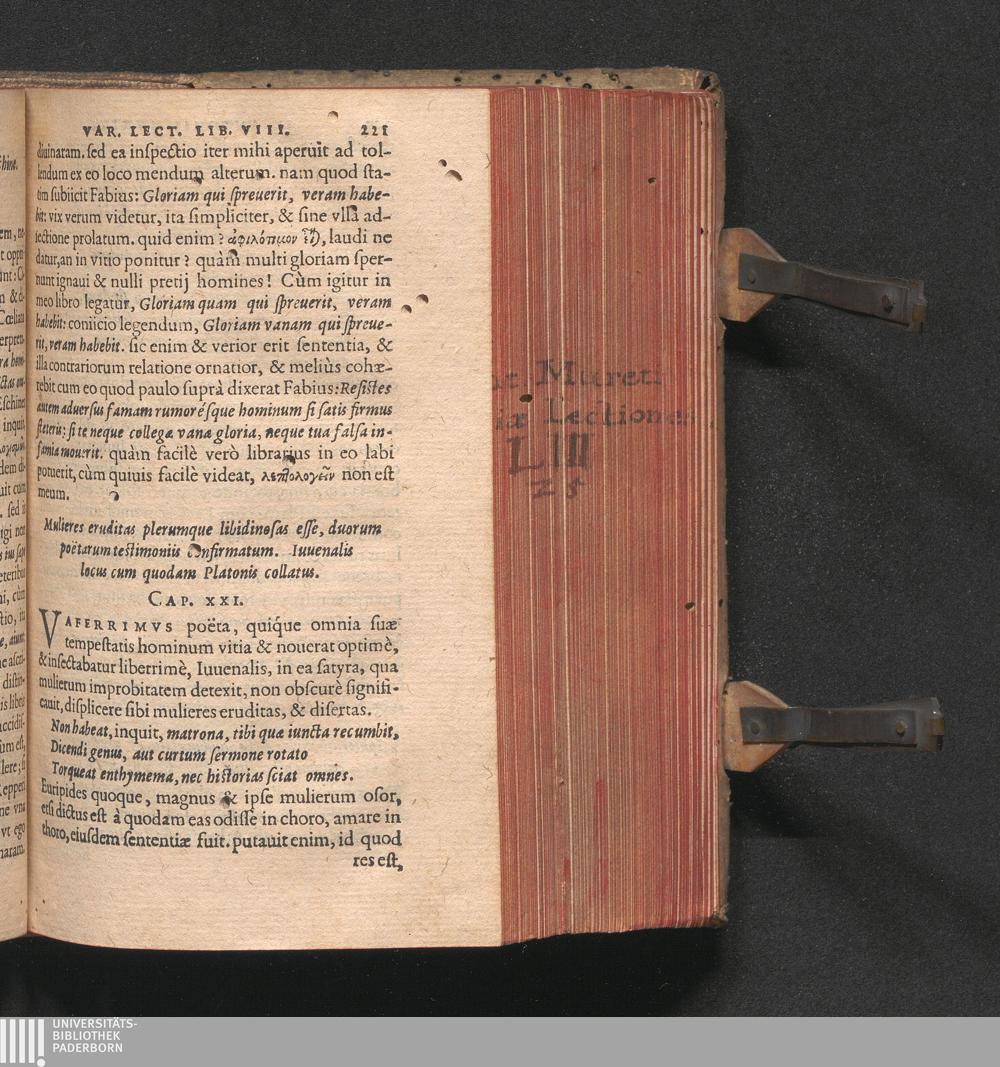 VAR. LECT. LIB. VIII. 221
diuinaram. sed ea inspectio iter mihi aperuit ad tol-
lendum ex eo loco mendum alterum. nam quod sta-
tim subiicit Fabius: Gloriam qui spreuerit, veram habe-
bit: vix verum videtur, ita simpliciter, & sine vlla ad-
iectione prolatum. quid enim? ἀφιλότιμον εἶ), laudi ne
datur, an in vitio ponitur? quàm multi gloriam sper-
nunt ignaui & nulli pretij homines! Cùm igitur in
meo libro legatur, Gloriam quam qui spreuerit, veram
habebit: coniicio legendum, Gloriam vanam qui spreue-
rit, veram habebit. sic enim & verior erit sententia, &
illa contrariorum relatione ornatior, & meliùs cohæ-
rebit cum eo quod paulo suprà dixerat Fabius: Resistes
autem aduersus famam rumorésque hominum si satis firmus
steteris: si te neque collegæ vana gloria, neque tua falsa in-
famia mouerit. quàm facilè verò librarius in eo labi
potuerit, cùm quiuis facilè videat, λεπτολογεῖν non est
meum.
Mulieres eruditas plerumque libidinosas esse, duorum
poëtarum testimoniis confirmatum. Iuuenalis
locus cum quodam Platonis collatus.
CAP. XXI.
VAFERRIMVS poëta, quíque omnia suæ
tempestatis hominum vitia & nouerat optimè,
& insectabatur liberrimè, Iuuenalis, in ea satyra, qua
mulierum improbitatem detexit, non obscurè signifi-
cauit, displicere sibi mulieres eruditas, & disertas.
Non habeat, inquit, matrona, tibi quæ iuncta recumbit,
Dicendi genus, aut curtum sermone rotato
Torqueat enthymema, nec historias sciat omnes.
Euripides quoque, magnus & ipse mulierum osor,
etsi dictus est à quodam eas odisse in choro, amare in
thoro, eiusdem sententiæ fuit. putauit enim, id quod
res est,
Mureti
Lectiones
LIII
25
UNIVERSITÄTS-
BIBLIOTHEK
PADERBORN